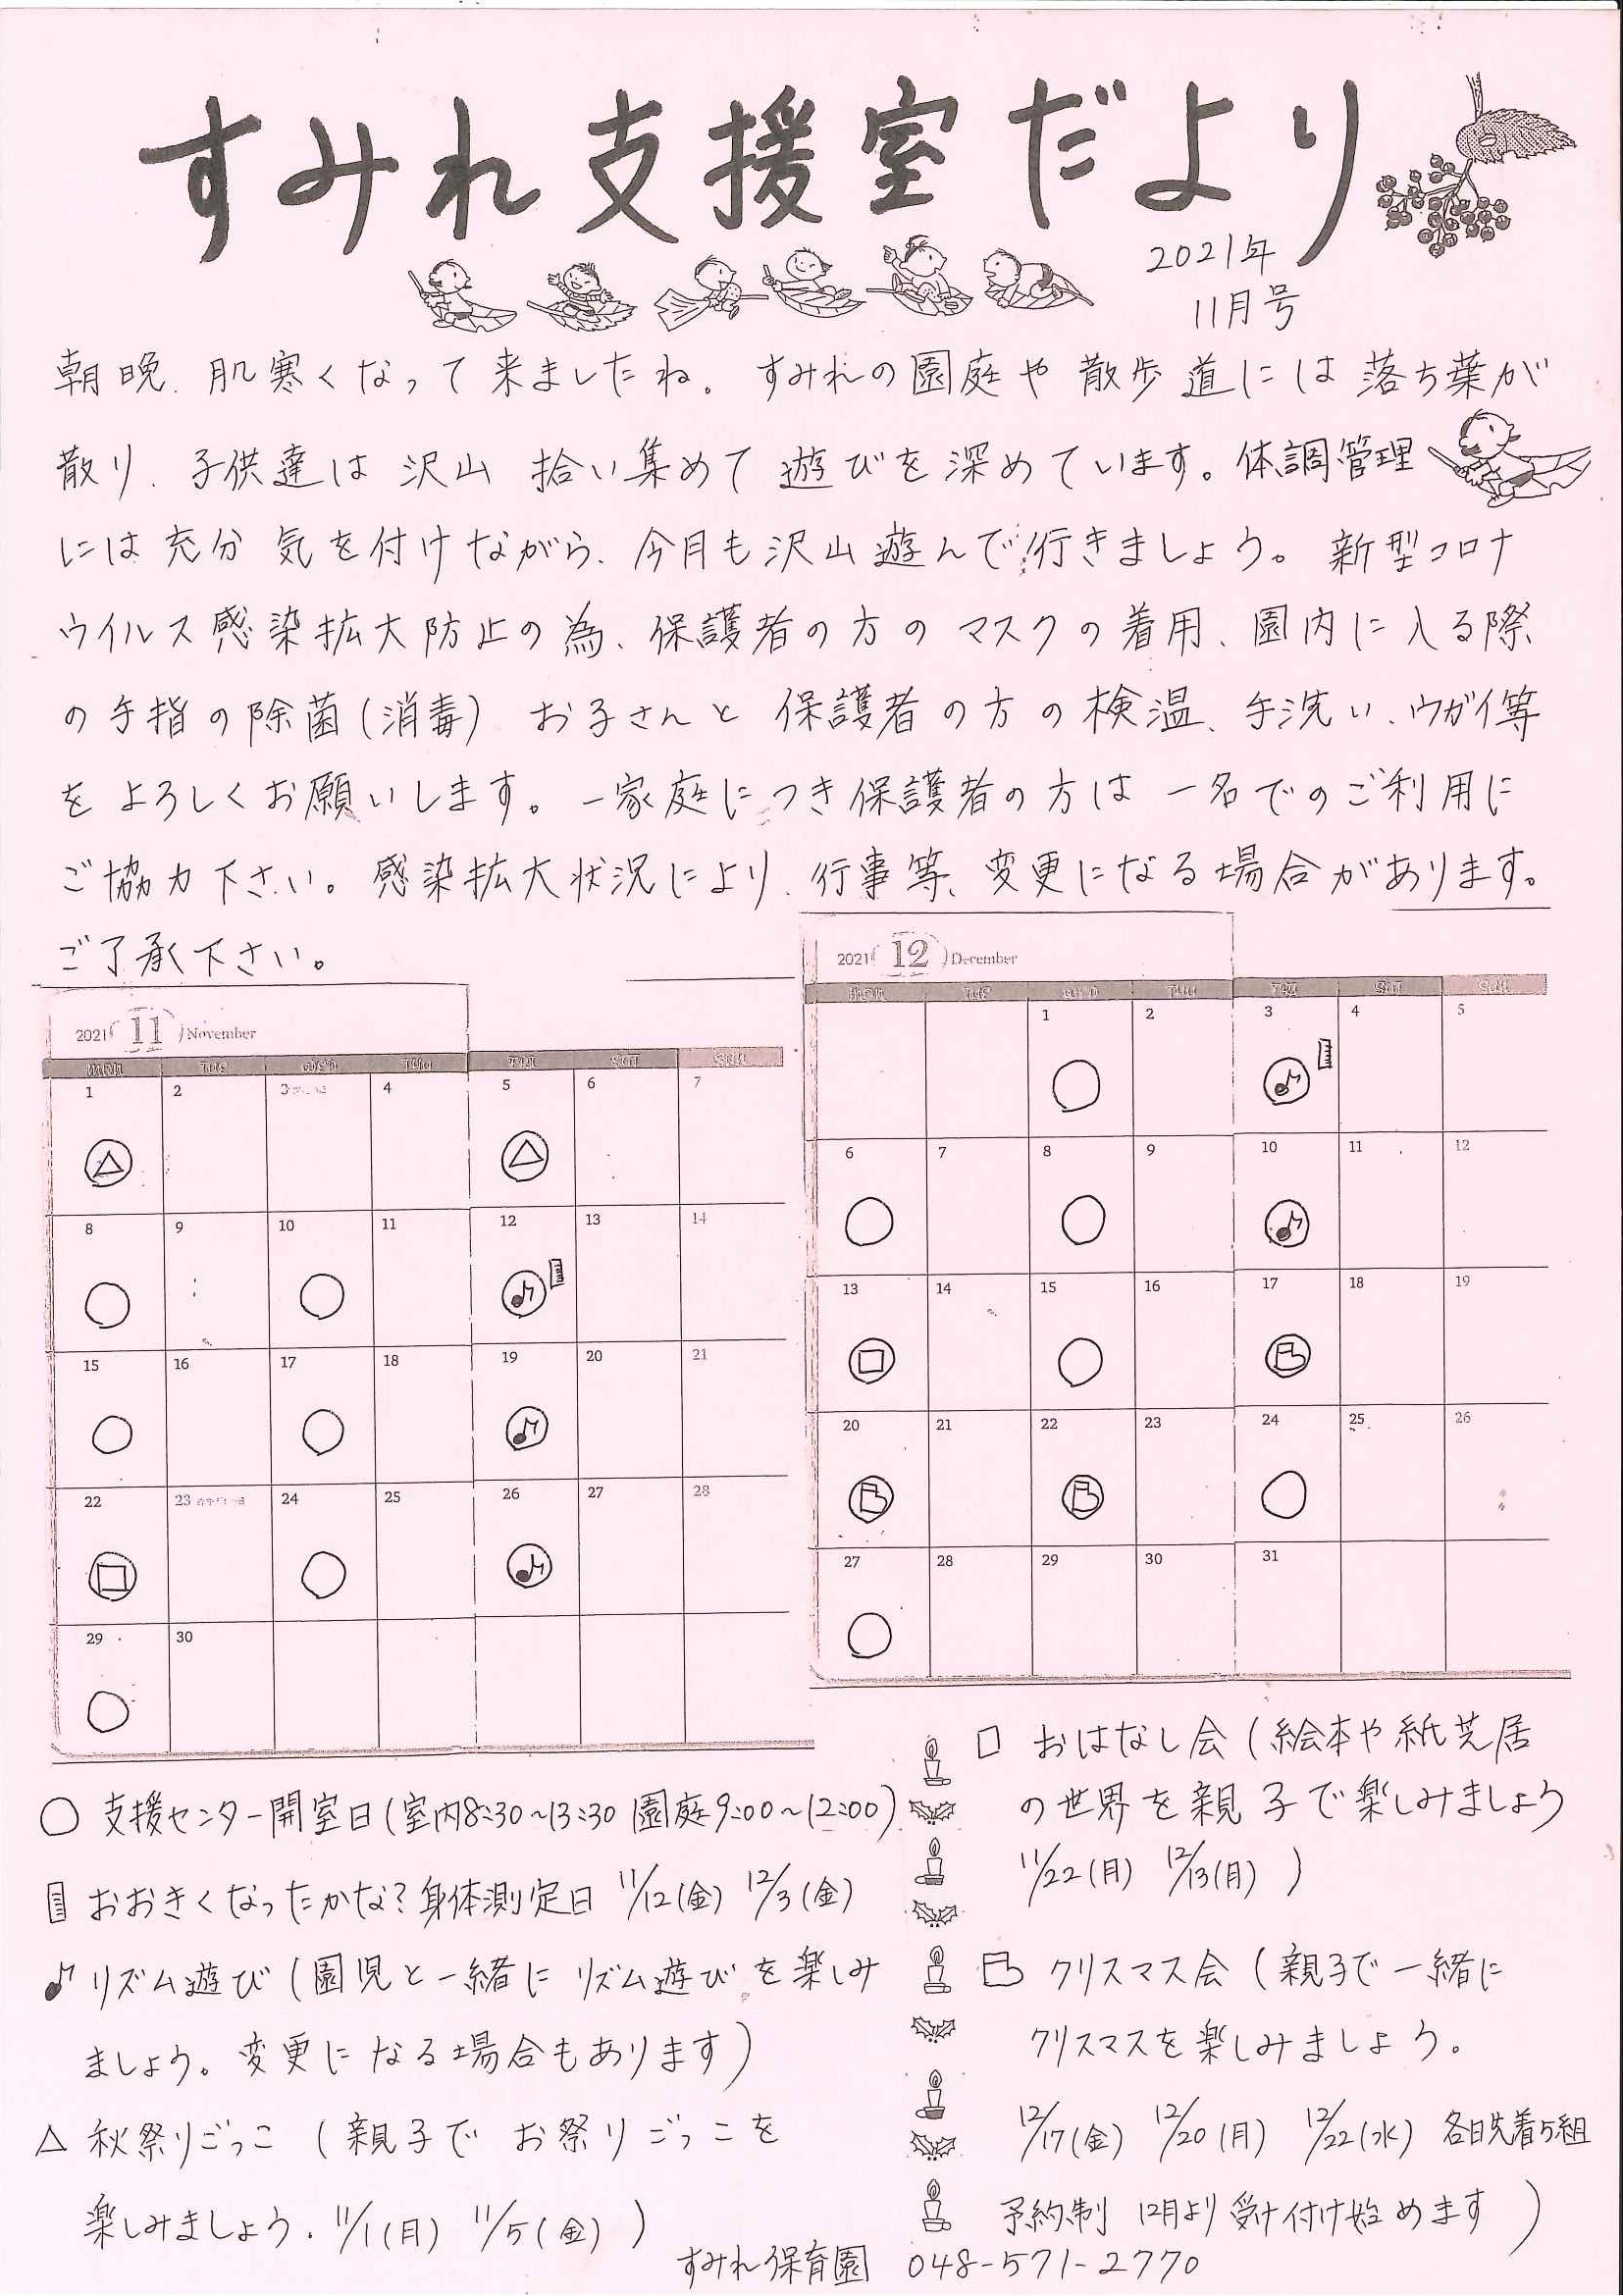 すみれ支援室だより
2021年
11月号
朝晩、肌寒くなって来ましたね。すみれの園庭や散歩道には落ち葉が
散り、子供達は沢山拾い集めて遊びを深めています。体調管理
には充分気を付けながら、今月も沢山遊んで行きましょう。新型コロナ
ウイルス感染拡大防止の為、保護者の方のマスクの着用、園内に入る際
の手指の除菌(消毒) お子さんと保護者の方の検温、手洗い、ウガイ等
をよろしくお願いします。一家庭につき保護者の方は一名でのご利用に
ご協力下さい。感染拡大状況により、行事等、変更になる場合があります。
ご了承下さい。
2021 11 November
MON TUE WED THU FRI SAT SUN
1 2 3 4 5 6 7
8 9 10 11 12 13 14
15 16 17 18 19 20 21
22 23 24 25 26 27 28
29 30
2021 12 December
MON TUE WED THU FRI SAT SUN
1 2 3 4 5
6 7 8 9 10 11 12
13 14 15 16 17 18 19
20 21 22 23 24 25 26
27 28 29 30 31
○ 支援センター開室日(室内8:30~13:30 園庭9:00~12:00)
おおきくなったかな?身体測定日 11/12(金) 12/3(金)
♪ リズム遊び(園児と一緒にリズム遊びを楽しみ
ましょう。変更になる場合もあります)
△ 秋祭りごっこ (親子でお祭りごっこを
楽しみましょう. 11/1(月) 11/5(金) )
□ おはなし会(絵本や紙芝居
の世界を親子で楽しみましょう
11/22(月) 12/13(月) )
クリスマス会(親子で一緒に
クリスマスを楽しみましょう。
12/17(金) 12/20(月) 12/22(水) 各日先着5組
予約制 12月より受け付け始めます )
すみれ保育園 048-571-2770